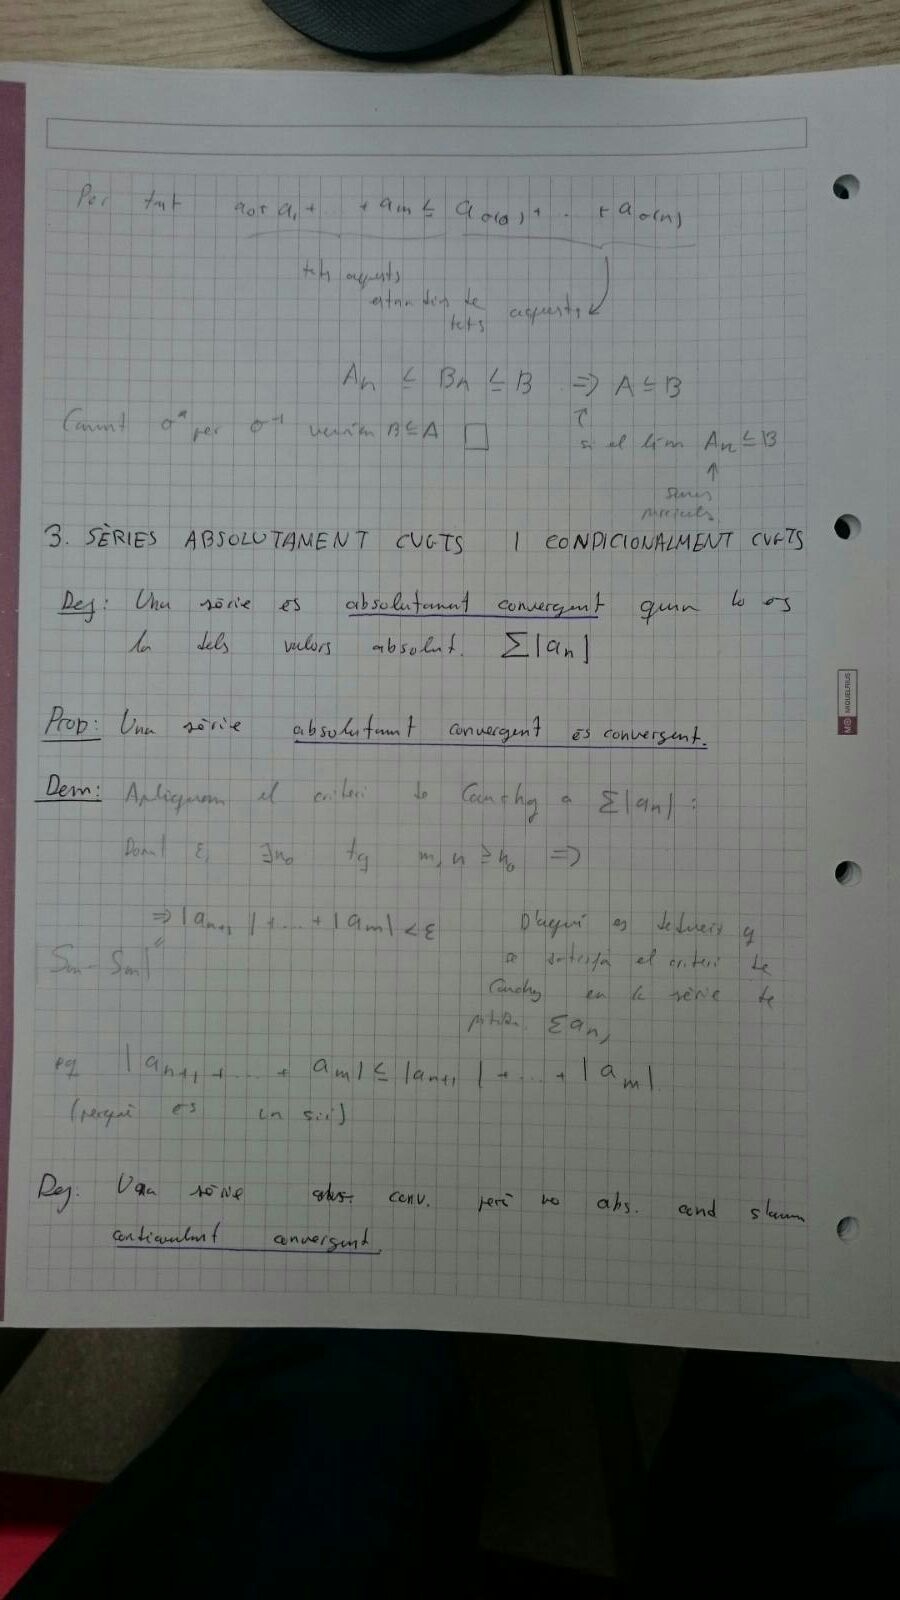 Per tant a₀ + a₁ + ... + aₘ ≤ a_σ(0) + ... + a_σ(n)
tots aquests
estan dins de
tots aquests
Aₙ ≤ Bₙ ≤ B ⇒ A ≤ B
Canvi σ per σ⁻¹ B ≤ A □
si el lim Aₙ ≤ B
sumes
parcials
3. SÈRIES ABSOLUTAMENT CVGTS I CONDICIONALMENT CVGTS
Def: Una sèrie és absolutament convergent quan ho és
la dels valors absolut. Σ|aₙ|
Prop: Una sèrie absolutamnt convergent és convergent.
Dem: Apliquem el criteri de Cauchy a Σ|aₙ| :
Donat ε, ∃n₀ tq m, n ≥ n₀ ⇒
⇒ |aₙ₊₁| + ... + |aₘ| < ε
D'aquí es dedueix q
se satisfà el criteri de
Cauchy en la sèrie de
Σaₙ,
|aₙ₊₁ + ... + aₘ| ≤ |aₙ₊₁| + ... + |aₘ|
(perquè és
Def. Una sèrie conv. però no abs. conv
convergent.
MIQUELRIUS